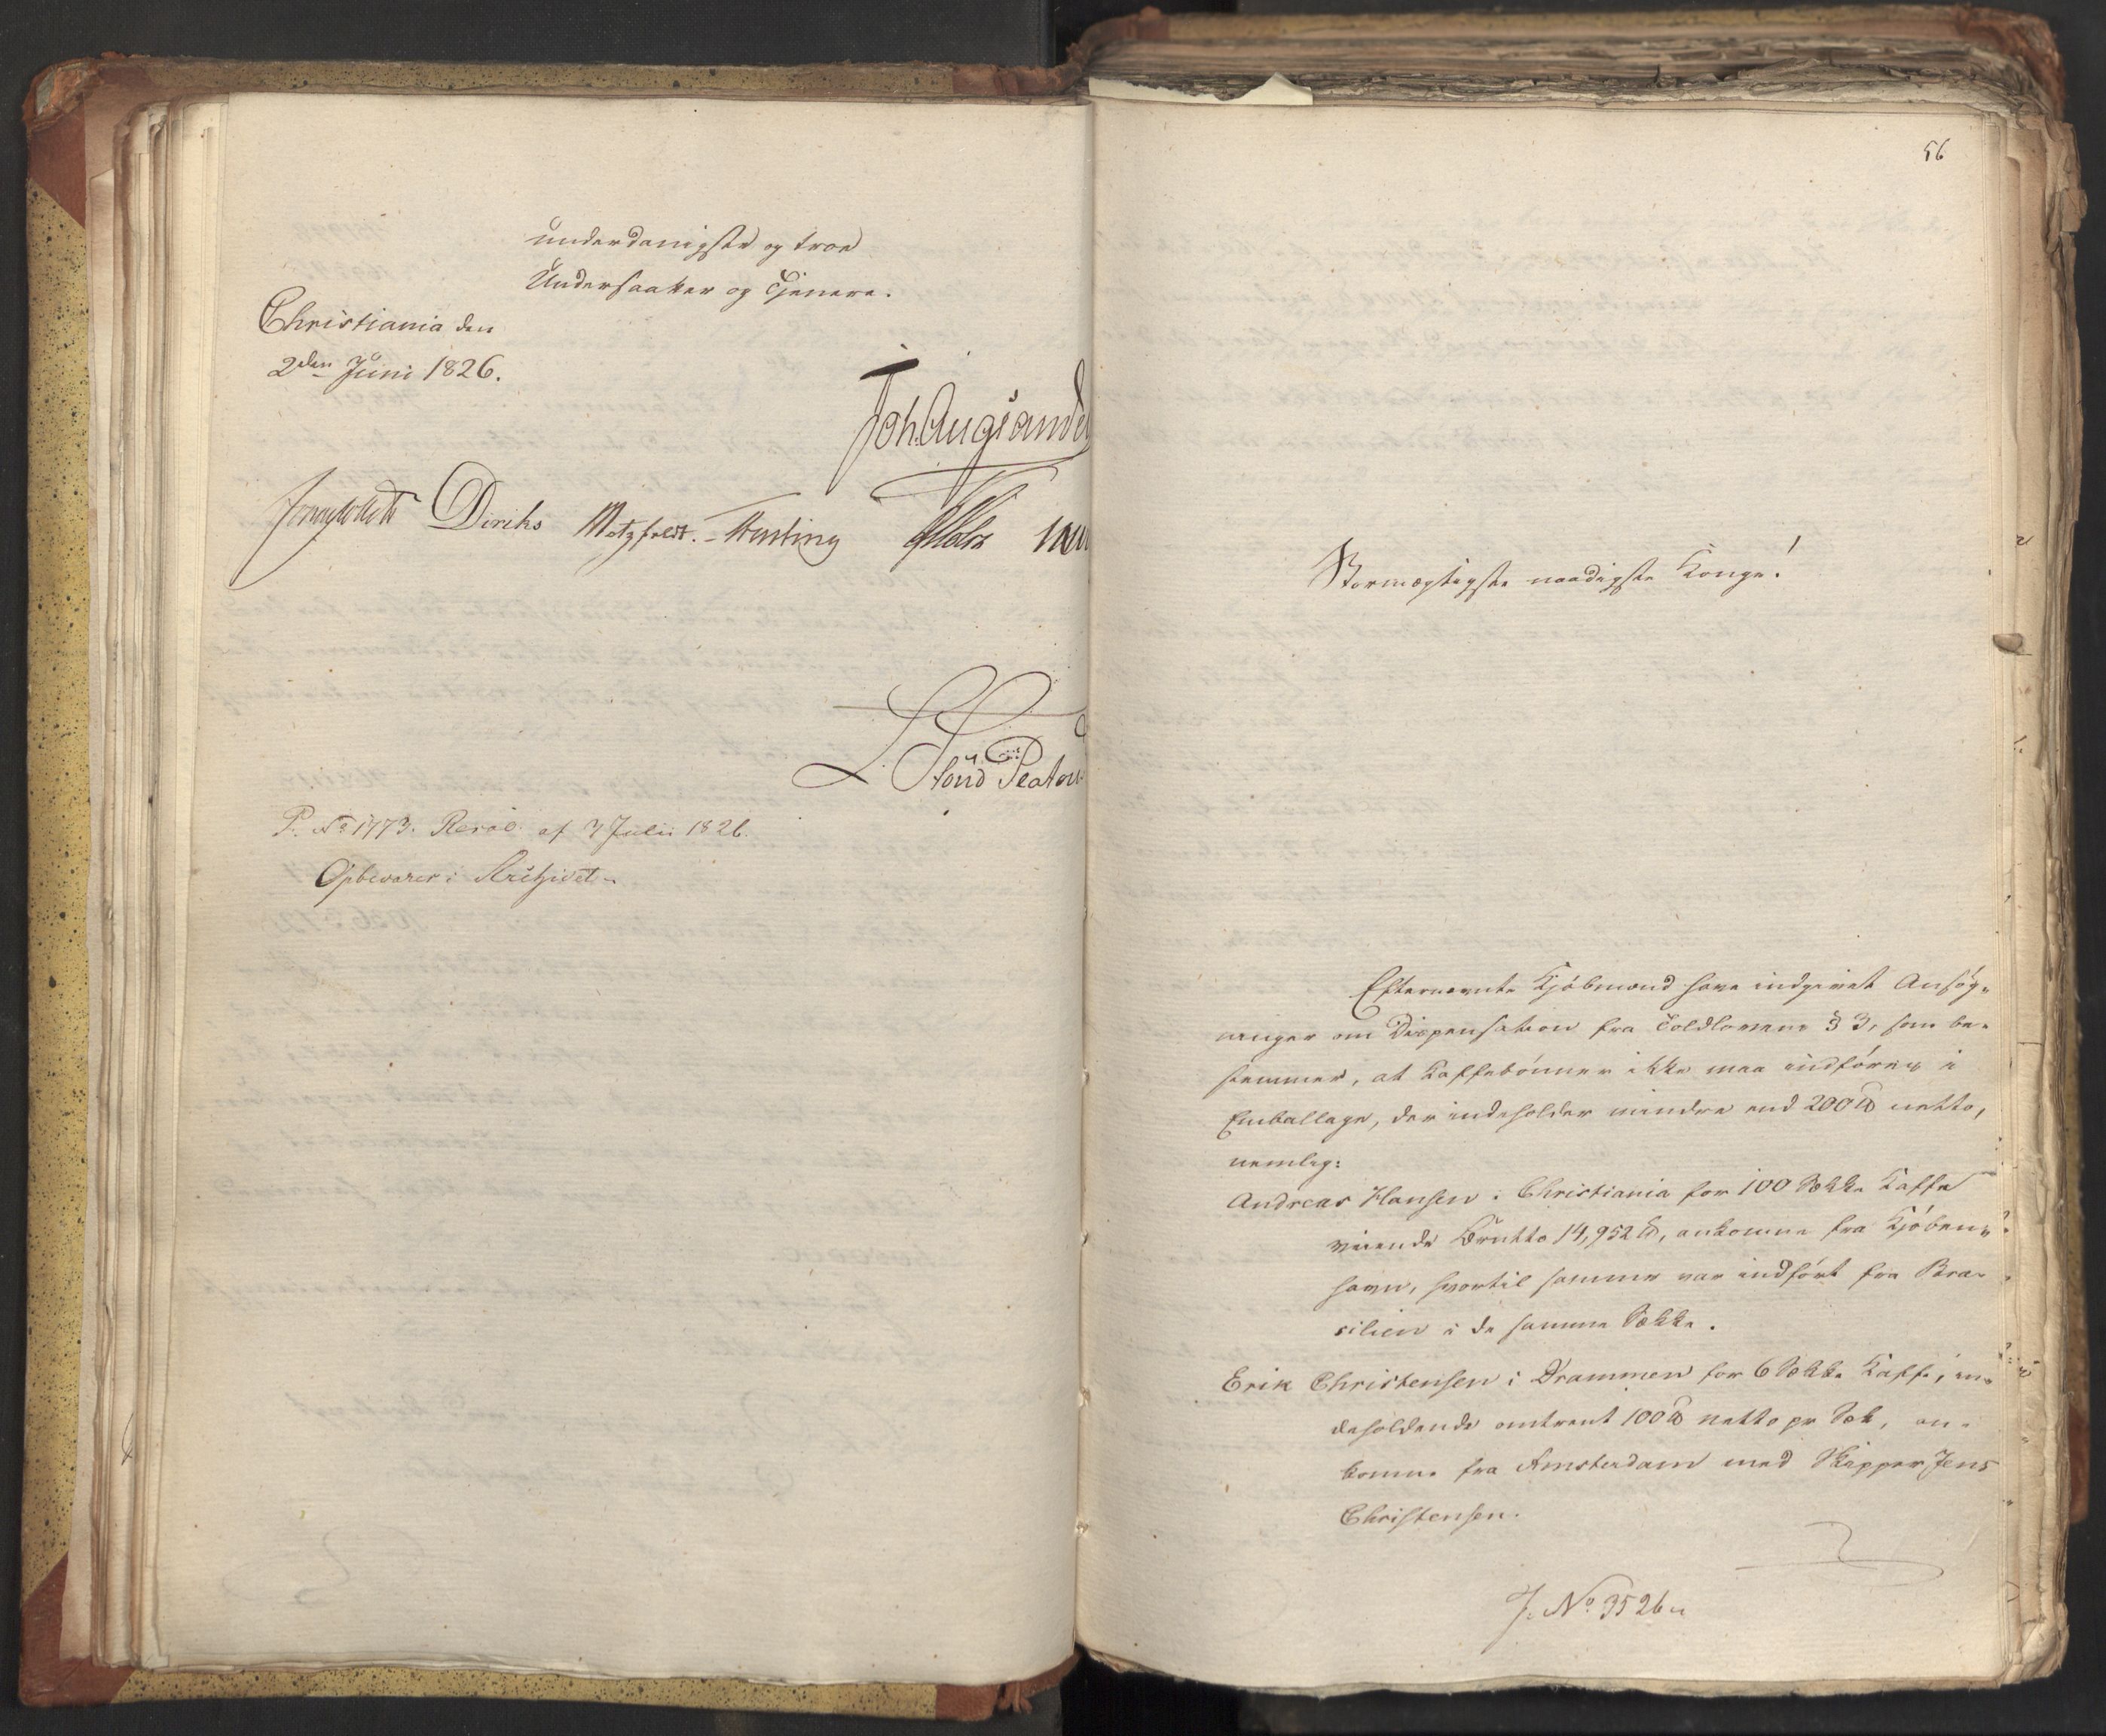 underdanigste og troe
Undersaatter og Tjenere.
Christiania den
2den Juni 1826.
Joh. Aug. Sande
Jonas Collett Diriks Motzfeldt. Hersting
L. Platou
P. No 1773. Resol. af 7 Julii 1826.
Opbevares i Archivet.
56
Stormægtigste naadigste Konge!
Efternævnte Kjøbmænd have indgivet Ansøg-
ninger om Dispensation fra Toldlovens § 3, som be-
stemmer, at Kaffebønner ikke maa indføres i
Emballage, der indeholder mindre end 200 ℔ netto,
nemlig:
Andreas Hansen i Christiania for 100 Sække Kaffe
veiende Brutto 14,952 ℔, ankomne fra Kjøben-
havn, hvortil samme var indført fra Bra-
silien i de samme Sække.
Erik Christensen i Drammen for 6 Sække Kaffe, in-
deholdende omtrent 100 ℔ netto pr Sæk, an-
komne fra Amsterdam med Skipper Jens
Christensen.
J. No. 3526